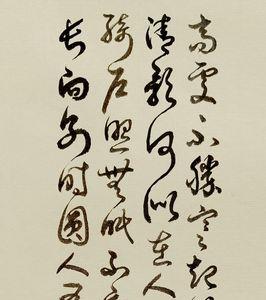 高處不勝寒起
清影何似在人
綺戶照無眠不
長向別時圓人